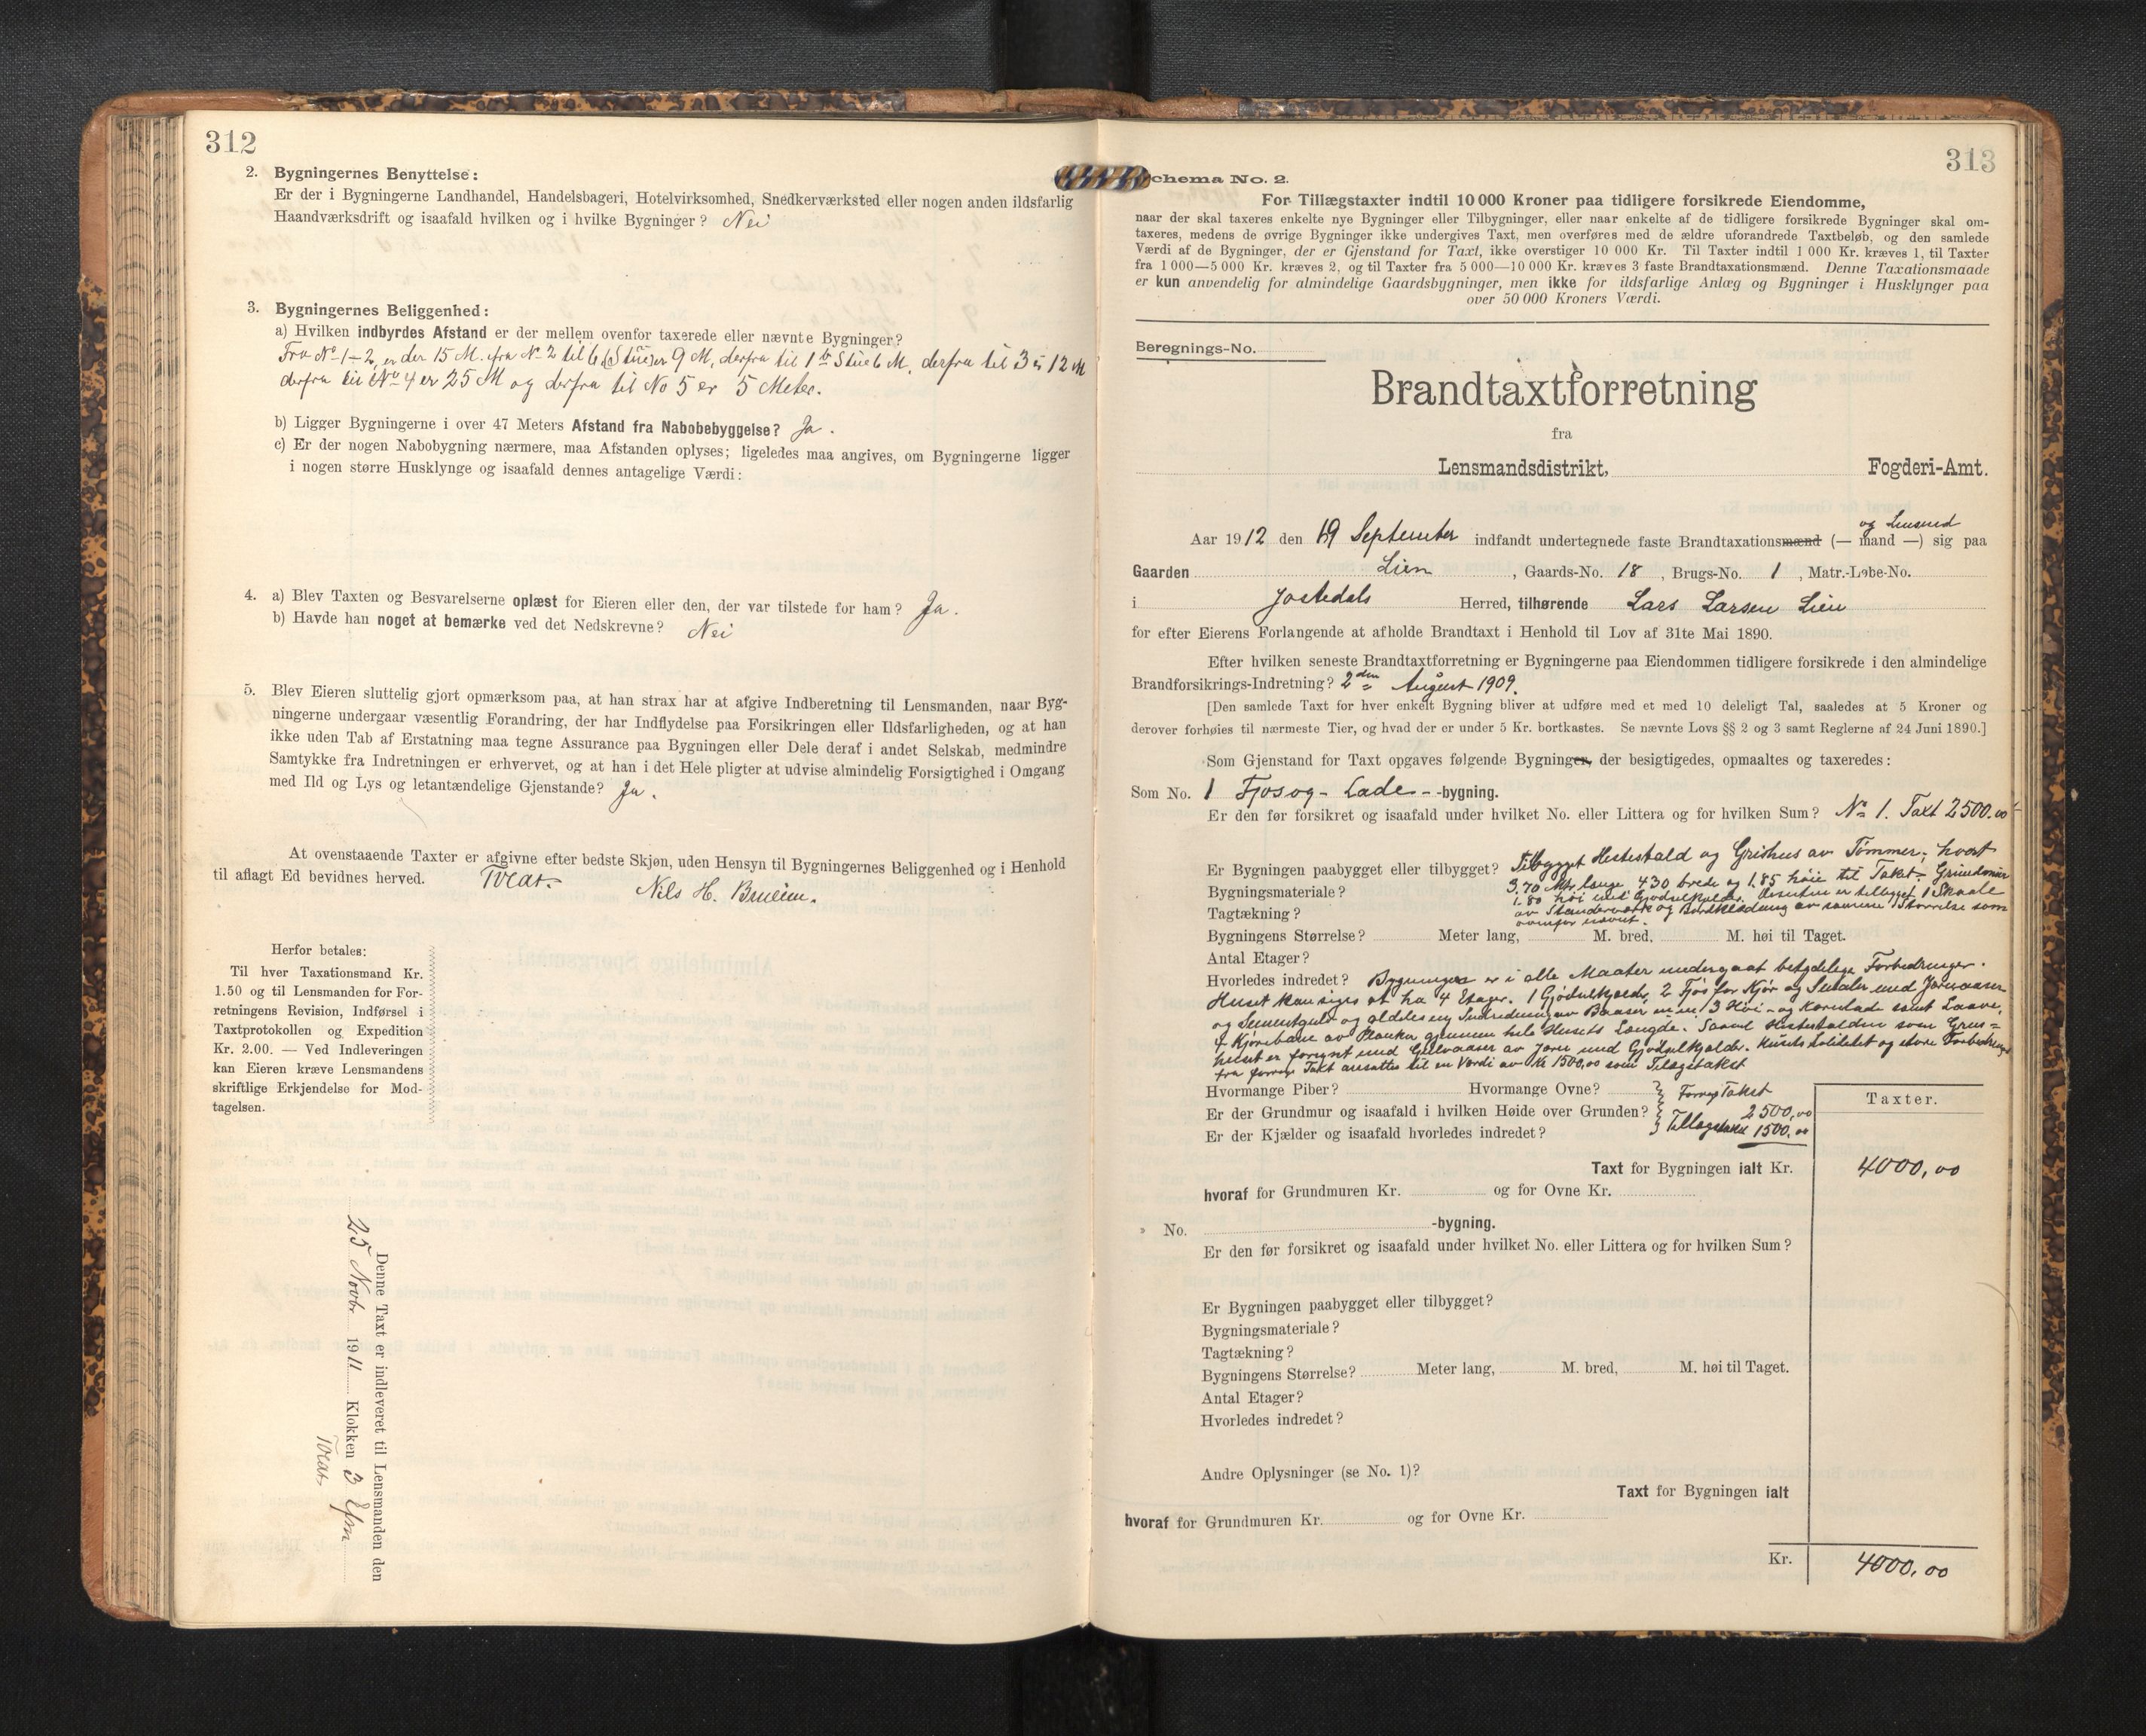 312
2. Bygningernes Benyttelse:
Er der i Bygningerne Landhandel, Handelsbageri, Hotelvirksomhed, Snedkerværksted eller nogen anden ildsfarlig
Haandværksdrift og isaafald hvilken og i hvilke Bygninger? Nei
3. Bygningernes Beliggenhed:
a) Hvilken indbyrdes Afstand er der mellem ovenfor taxerede eller nævnte Bygninger?
Fra No 1–2 er der 15 M. fra No 2 til 6 (Stue) er 9 M, derfra til 1 b Stue 6 M, derfra til 3 12 M
derfra til No 4 er 25 M og derfra til No 5 er 5 Meter.
b) Ligger Bygningerne i over 47 Meters Afstand fra Nabobebyggelse? Ja.
c) Er der nogen Nabobygning nærmere, maa Afstanden oplyses; ligeledes maa angives, om Bygningerne ligger
i nogen større Husklynge og isaafald dennes antagelige Værdi:
4. a) Blev Taxten og Besvarelserne oplæst for Eieren eller den, der var tilstede for ham? Ja.
b) Havde han noget at bemærke ved det Nedskrevne? Nei
5. Blev Eieren sluttelig gjort opmærksom paa, at han strax har at afgive Indberetning til Lensmanden, naar Byg-
ningerne undergaar væsentlig Forandring, der har Indflydelse paa Forsikringen eller Ildsfarligheden, og at han
ikke uden Tab af Erstatning maa tegne Assurance paa Bygningen eller Dele deraf i andet Selskab, medmindre
Samtykke fra Indretningen er erhvervet, og at han i det Hele pligter at udvise almindelig Forsigtighed i Omgang
med Ild og Lys og letantændelige Gjenstande? Ja.
At ovenstaaende Taxter er afgivne efter bedste Skjøn, uden Hensyn til Bygningernes Beliggenhed og i Henhold
til aflagt Ed bevidnes herved. Nils H. Bruheim.
Herfor betales:
Til hver Taxationsmand Kr.
1.50 og til Lensmanden for For-
retningens Revision, Indførsel i
Taxtprotokollen og Expedition
Kr. 2.00. — Ved Indleveringen
kan Eieren kræve Lensmandens
skriftlige Erkjendelse for Mod-
tagelsen.
Denne Taxt er indleveret til Lensmanden den
25 Novbr. 1911 Klokken 3 Efm
313
chema No. 2.
For Tillægstaxter indtil 10 000 Kroner paa tidligere forsikrede Eiendomme,
naar der skal taxeres enkelte nye Bygninger eller Tilbygninger, eller naar enkelte af de tidligere forsikrede Bygninger skal om-
taxeres, medens de øvrige Bygninger ikke undergives Taxt, men overføres med de ældre uforandrede Taxtbeløb, og den samlede
Værdi af de Bygninger, der er Gjenstand for Taxt, ikke overstiger 10 000 Kr. Til Taxter indtil 1 000 Kr. kræves 1, til Taxter
fra 1 000—5 000 Kr. kræves 2, og til Taxter fra 5 000—10 000 Kr. kræves 3 faste Brandtaxationsmænd. Denne Taxationsmaade
er kun anvendelig for almindelige Gaardsbygninger, men ikke for ildsfarlige Anlæg og Bygninger i Husklynger paa
over 50 000 Kroners Værdi.
Beregnings-No.
Brandtaxtforretning
fra
Lensmandsdistrikt, Fogderi-Amt.
og Lensmd
Aar 1912 den 19 September indfandt undertegnede faste Brandtaxationsmænd (— mand —) sig paa
Gaarden Lien, Gaards-No. 18, Brugs-No. 1, Matr.-Løbe-No.
i Jostedals Herred, tilhørende Lars Larsen Lien
for efter Eierens Forlangende at afholde Brandtaxt i Henhold til Lov af 31te Mai 1890.
Efter hvilken seneste Brandtaxtforretning er Bygningerne paa Eiendommen tidligere forsikrede i den almindelige
Brandforsikrings-Indretning? 2den August 1909.
[Den samlede Taxt for hver enkelt Bygning bliver at udføre med et med 10 deleligt Tal, saaledes at 5 Kroner og
derover forhøies til nærmeste Tier, og hvad der er under 5 Kr. bortkastes. Se nævnte Lovs §§ 2 og 3 samt Reglerne af 24 Juni 1890.]
Som Gjenstand for Taxt opgaves følgende Bygningen, der besigtigedes, opmaaltes og taxeredes:
Som No. 1 Fjos og - Lade - -bygning.
Er den før forsikret og isaafald under hvilket No. eller Littera og for hvilken Sum? No 1. Taxt 2500.00
Er Bygningen paabygget eller tilbygget? Tilbygget Hestestald og Grishus av Tømmer; hvert
Bygningsmateriale? 3.70 Mtr. lange, 4.30 brede og 1.85 høie til Taket. Grundmur
1.80 høi med Gjødselkjelder. Desuden er tilbygget 1 Skaale
Tagtækning? av Standerværk og Bordklædning av samme Størrelse som
ovenfor nævnt.
Bygningens Størrelse? Meter lang, M. bred, M. høi til Taget.
Antal Etager?
Hvorledes indredet? Bygningen er i alle Maater undergaat betydelige Forbedringer.
Huset kan siges at ha 4 Etager. 1 Gjødselkjelder, 2 Fjøs for Kjør og Smaler med
og Sementgulv og aldeles ny Indredning av Baaser m.m. 3 Høi- og Kornlade samt Laave,
4 Kjørebane av Planker gjennem hele Husets Længde. Saavel Hestestalden som Gris-
huset er forsynt med av Jern med Gjødselkjelder. Husets soliditet og store Forbedringer
fra forrige Takt ansættes til en Værdi av Kr 1500,00 som Tilægstakst
Hvormange Piber? Hvormange Ovne? Forrige Takst
Er der Grundmur og isaafald i hvilken Høide over Grunden? 2500,00
Er der Kjælder og isaafald hvorledes indredet? Tillægstakst 1500,00
Taxter.
Taxt for Bygningen ialt Kr. 4000,00
hvoraf for Grundmuren Kr. og for Ovne Kr.
» No. -bygning.
Er den før forsikret og isaafald under hvilket No. eller Littera og for hvilken Sum?
Er Bygningen paabygget eller tilbygget?
Bygningsmateriale?
Tagtækning?
Bygningens Størrelse? Meter lang, M. bred, M. høi til Taget.
Antal Etager?
Hvorledes indredet?
Andre Oplysninger (se No. 1)?
Taxt for Bygningen ialt
hvoraf for Grundmuren Kr. og for Ovne Kr.
Kr. 4000,00